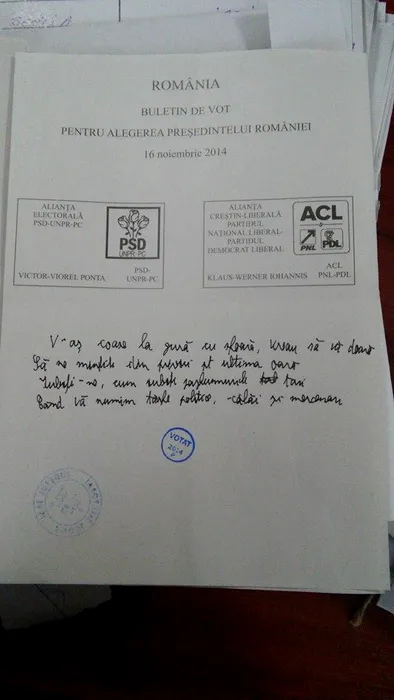 ROMÂNIA
BULETIN DE VOT
PENTRU ALEGEREA PREȘEDINTELUI ROMÂNIEI
16 noiembrie 2014
ALIANȚA
ELECTORALĂ
PSD-UNPR-PC
PSD
UNPR PC
VICTOR-VIOREL PONTA
PSD-
UNPR-PC
ALIANȚA
CREȘTIN-LIBERALĂ
PARTIDUL
NAȚIONAL LIBERAL-
PARTIDUL
DEMOCRAT LIBERAL
ACL
PNL
PDL
KLAUS-WERNER IOHANNIS
ACL
PNL-PDL
V-aș coase la gură cu sfoară, vreau să vă doară
Să ne mințiți din priviri pt ultima oară
Iubiți-ne, cum iubesc
Când vă numim politice, călăi și mercenari
VOTAT
2014